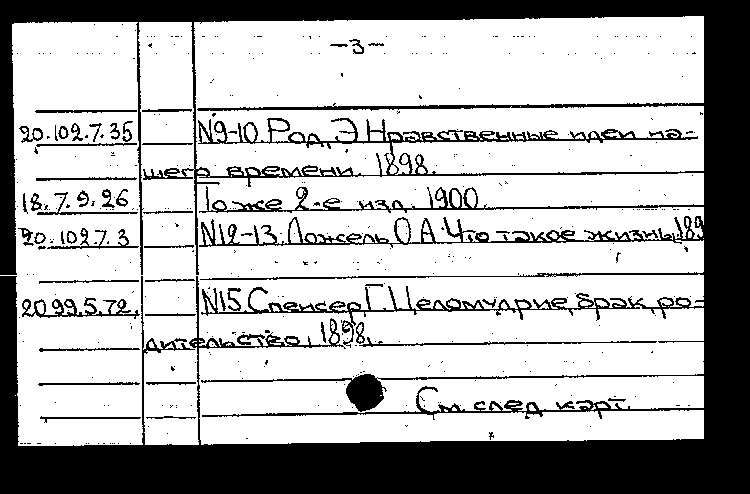 -3-
20.102.7.35 N9-10. Род, Э. Нравственные идеи на=
шего времени. 1898.
18.7.9.26 То же 2-е изд. 1900.
20.102.7.3 N12-13. Ложель, О.А. Что такое жизнь. 189
20.99.5.72. N15. Спенсер, Г. Целомудрие, брак, ро=
дительство, 1898.
См. след карт.